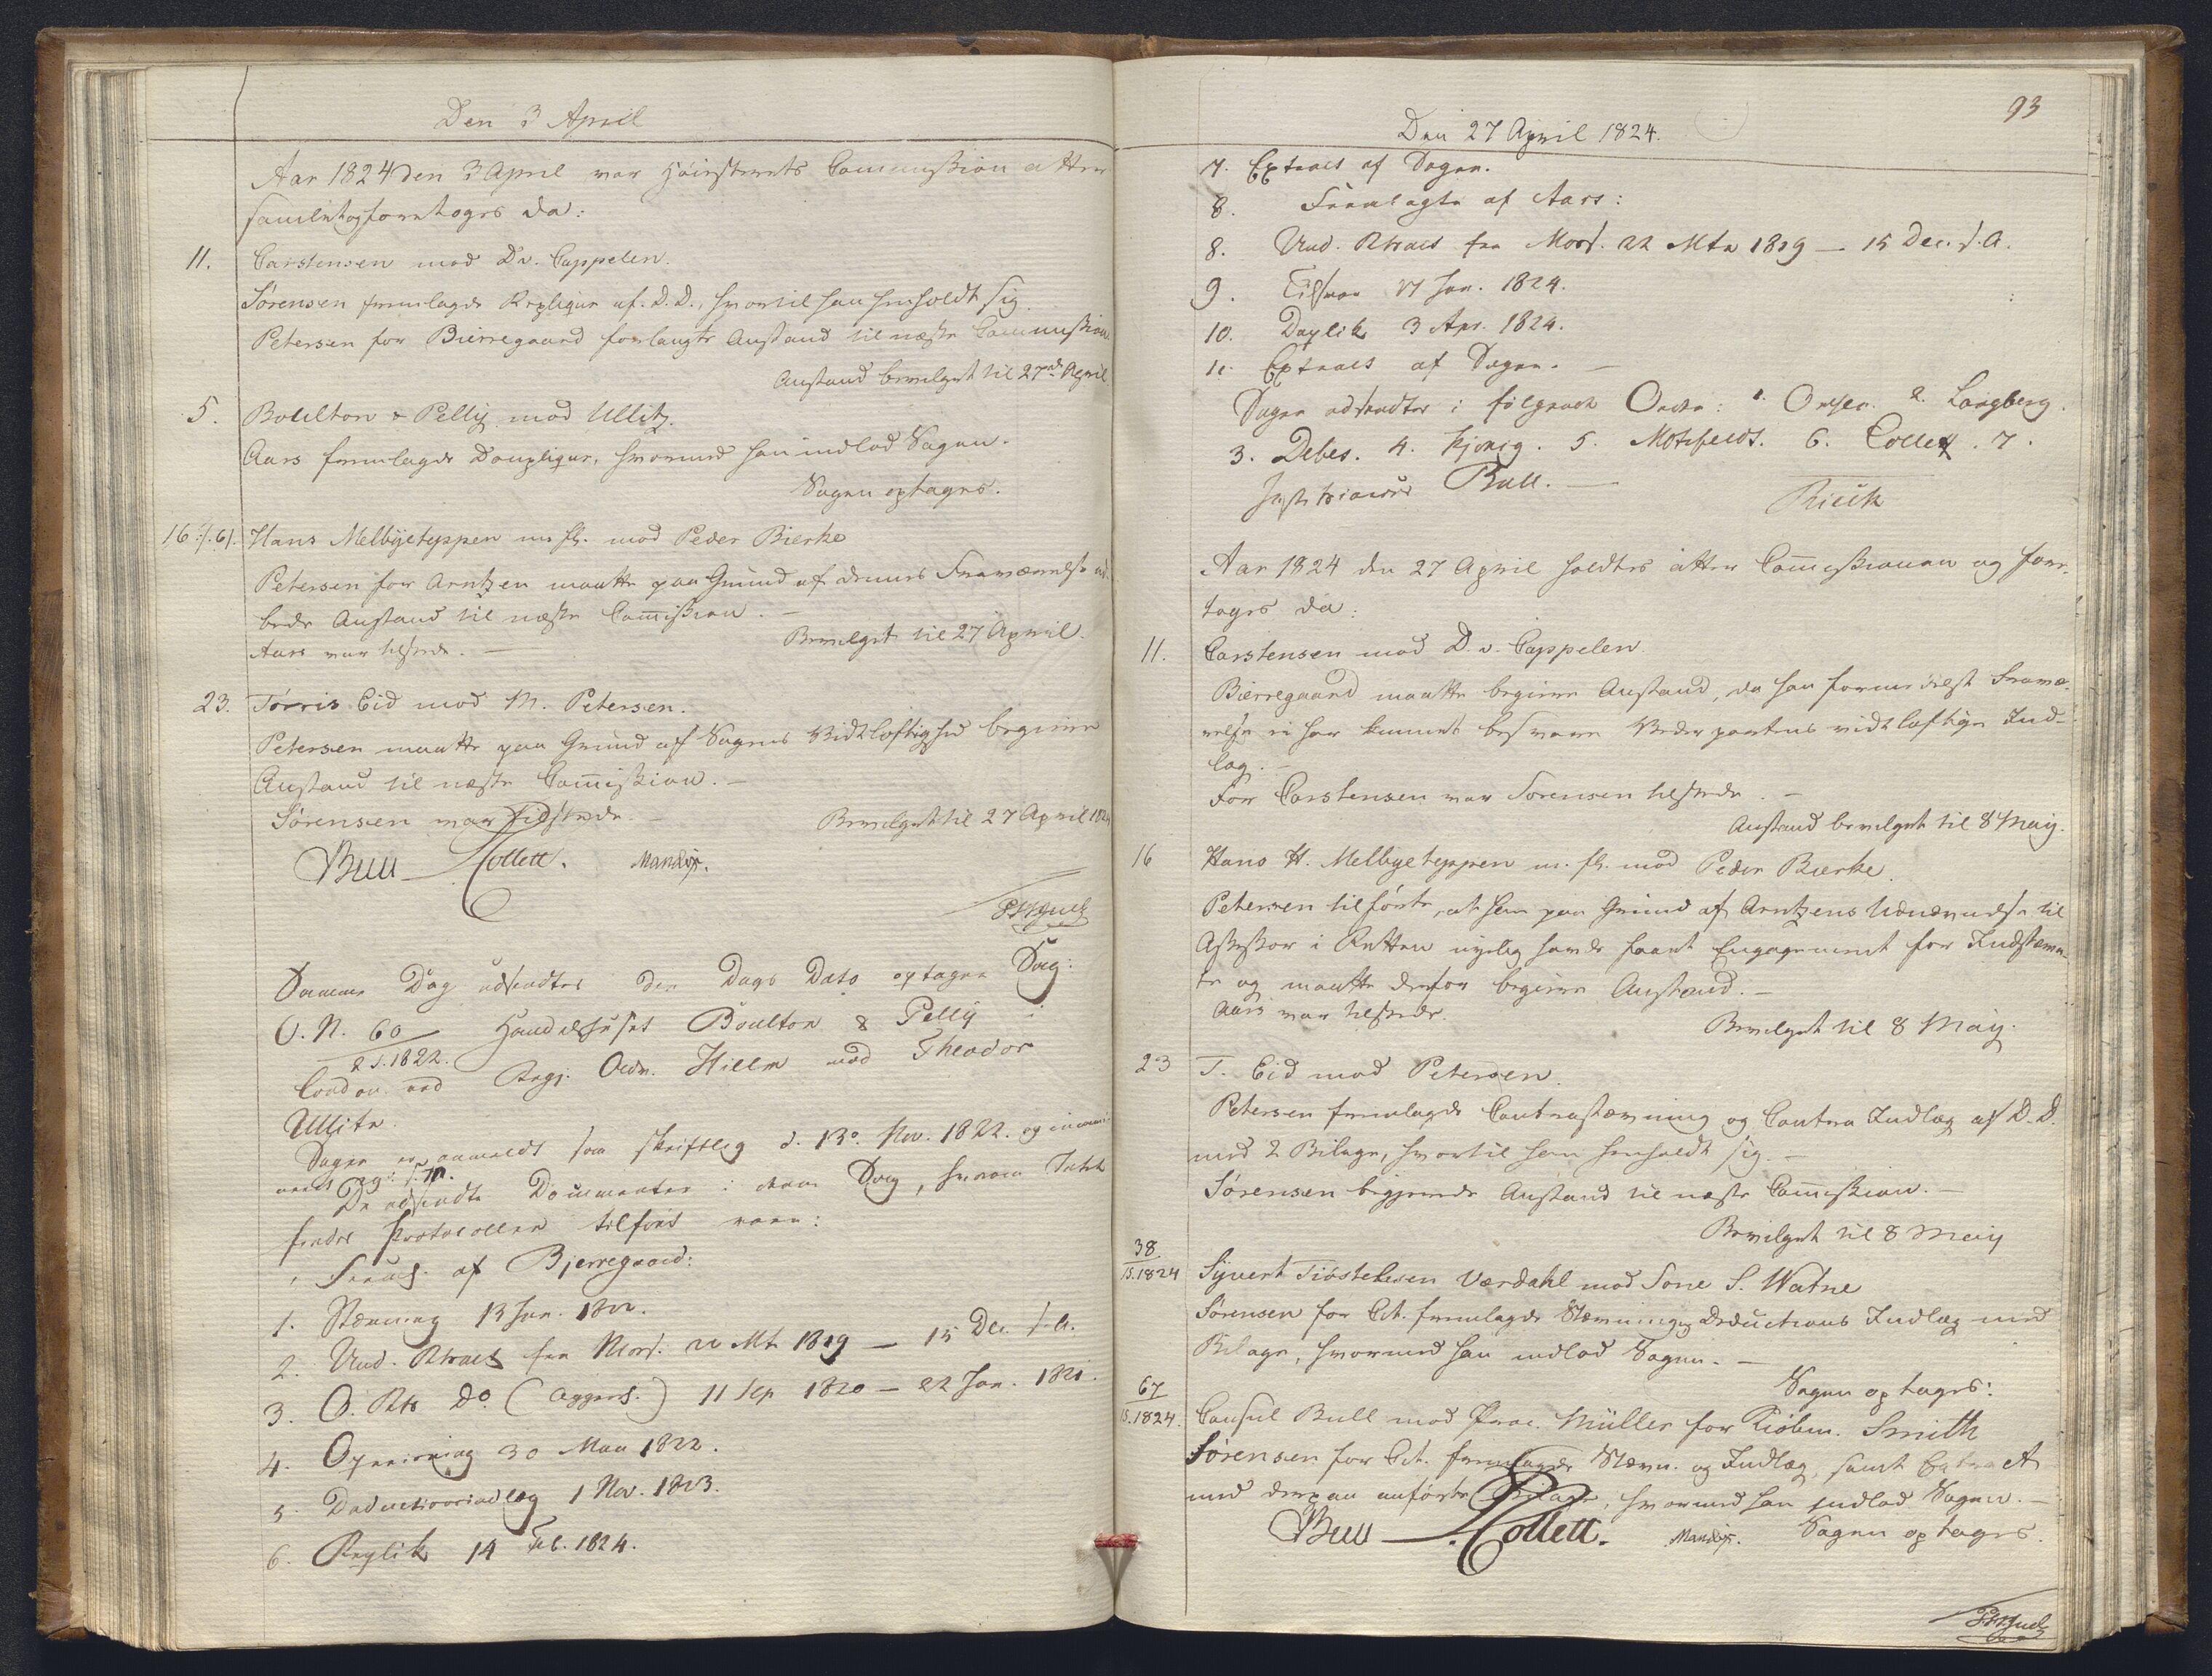 Den 3 April
Aar 1824 den 3 April var Höiesterets Commission atter
samlet og foretoges da:
11. Carstensen mod D. v. Cappelen.
Sörensen fremlagde Repliqve af D.D., hvortil han henholdt sig.
Petersen for Bierregaard forlangte Anstand til næste Commission
Anstand bevilget til 27de April
5. Boulton & Pelly mod Ullitz.
Aars fremlagde Doupliqve, hvormed han indlod Sagen.
Sagen optages.
16 Hans Melbyeteppen m. fl. mod Peder Bierke
Petersen for Arntzen maatte paa Grund af dennes Fraværelse ud-
bede Anstand til næste Commission. —
Aars var tilstede. —
Bevilget til 27 April.
23. Törris Eid mod M. Petersen.
Petersen maatte paa Grund af Sagens Vidtløftighed begjere
Anstand til næste Commission. —
Sörensen var tilstede. —
Bevilget til 27 April 1824
Bull Collett. Mandix.
Samme Dag udsendtes den Dags Dato optagne Sag:
O. N. 60
2 S. 1822. Handelshuset Boulton & Pelly i
London ved Regj. Adv. Hielm mod Theodor
Ullitz.
Sagen er anmeldt som skriftlig d. 13de Nov. 1822. og
De udsendte Documenter i denne Sag, hvorom Intet
findes Protocollen tilført vare:
Fremlagt af Bjerregaard:
1. Stævning 13 Jun. 1822.
2. Und. Rtsact fra Moss. 22 Mts 1819 — 15 Dec. s. A.
3. O. Rts Do (Aggersh.) 11 Sep 1820 — 22 Jan. 1821.
4. Opreisning 30 Mau 1822.
5. Deductionsindlæg 1 Nov. 1823.
6. Replik 14 Feb. 1824.
93
Den 27 April 1824.
7. Extract af Sagen.
8. Fremlagte af Aars:
8. Und. Rtsact fra Moss. 22 Mts 1819 — 15 Dec. s. A.
9. Tilsvar 17 Jan. 1824.
10. Duplik 3 Apr. 1824.
11. Extract af Sagen. —
Sagen udsendtes i følgende Orden: 1. Omsen. 2. Langberg.
3. Debes. 4. Hjorig. 5. Motzfeldt. 6. Collett. 7.
Justitiarius Bull. —
Aar 1824 den 27 April holdtes atter Commissionen og fore-
toges da:
11. Carstensen mod D. v. Cappelen.
Bierregaard maatte begjere Anstand, da han formedelst Fravæ-
relse ei har kunnet besvare Vederpartens vidtløftige Ind-
læg. —
For Carstensen var Sörensen tilstede. —
Anstand bevilget til 8 May.
16 Hans H. Melbyeteppen m. fl. mod Peder Bierke.
Petersen tilførte, at han paa Grund af Arntzens Udnævnelse til
Assessor i Retten nylig havde faaet Engagement for Indstævn-
te og maatte derfor begjere Anstand. —
Aars var tilstede.
Bevilget til 8 May.
23 T. Eid mod Petersen.
Petersen fremlagde Contrastævning og Contra Indlæg af D. D.
med 2 Bilage, hvortil han henholdt sig. —
Sörensen begjerede Anstand til næste Commission. —
Bevilget til 8 May
38
1 S. 1824 Syvert Tiöstelsen Værdahl mod Sone S. Watne
Sörensen for Cit. fremlagde Stævning og Deductions Indlæg med
Bilage, hvormed han indlod Sagen. —
Sagen optages:
67
1 S. 1824. Consul Bull mod Proc. Müller for Kiöbm. Smith
Sörensen for Cit. fremlagde Stævn. og Indlæg, samt Extract
med derpaa anførte Bilage, hvormed han indlod Sagen. —
Sagen optages.
Bull Collett. Mandix.